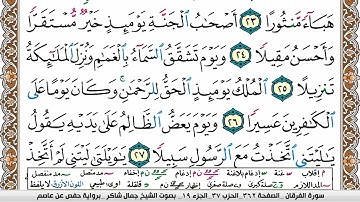 هَبَآءً مَّنثُورًا ٢٣ أَصْحَٰبُ ٱلْجَنَّةِ يَوْمَئِذٍ خَيْرٌ مُّسْتَقَرًّا
وَأَحْسَنُ مَقِيلًا ٢٤ وَيَوْمَ تَشَقَّقُ ٱلسَّمَآءُ بِٱلْغَمَٰمِ وَنُزِّلَ ٱلْمَلَٰٓئِكَةُ
تَنزِيلًا ٢٥ ٱلْمُلْكُ يَوْمَئِذٍ ٱلْحَقُّ لِلرَّحْمَٰنِ ۚ وَكَانَ يَوْمًا عَلَى
ٱلْكَٰفِرِينَ عَسِيرًا ٢٦ وَيَوْمَ يَعَضُّ ٱلظَّالِمُ عَلَىٰ يَدَيْهِ يَقُولُ
يَٰلَيْتَنِى ٱتَّخَذْتُ مَعَ ٱلرَّسُولِ سَبِيلًا ٢٧ يَٰوَيْلَتَىٰ لَيْتَنِى لَمْ أَتَّخِذْ
سورة الفرقان الصفحة ٣٦٢ الحزب ٣٧ الجزء ١٩ بصوت الشيخ جمال شاكر برواية حفص عن عاصم